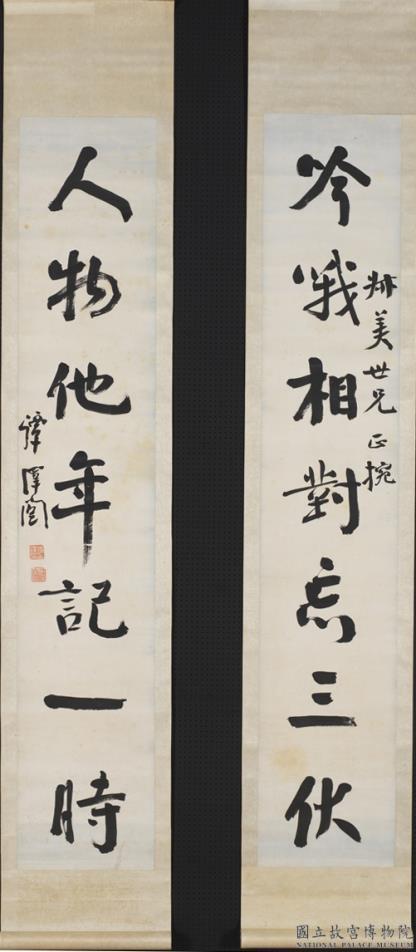 吟哦相對忘三伏
世兄正捥
人物他年記一時
譚澤闓
國立故宮博物院
NATIONAL PALACE MUSEUM